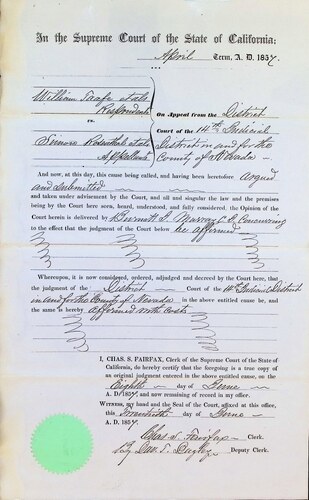 In the Supreme Court of the State of California:
April Term, A. D. 1857
William Taafe et als
Respondents
vs.
Simon Rosenthal et als
Appellants
On Appeal from the District
Court of the 14th Judicial
District in and for the
County of Nevada
And now, at this day, this cause being called, and having been heretofore argued
and submitted
and taken under advisement by the Court, and all and singular the law and the premises
being by the Court here seen, heard, understood, and fully considered: the Opinion of the
Court herein is delivered by Burnett J, Murray C. J. Concurring
to the effect that the judgment of the Court below be affirmed
Whereupon, it is now considered, ordered, adjudged and decreed by the Court here, that
the judgment of the District Court of the 14th Judicial District
in and for the County of Nevada in the above entitled cause be, and
the same is hereby affirmed with costs
I, CHAS. S. FAIRFAX, Clerk of the Supreme Court of the State of
California, do hereby certify that the foregoing is a true copy of
an original judgment entered in the above entitled cause, on the
Eighth day of June
A. D. 1857, and now remaining of record in my office.
WITNESS, my hand and the Seal of the Court, affixed at this office,
this day of June
A. D. 1857
Chas. S. Fairfax Clerk.
by Deputy Clerk.